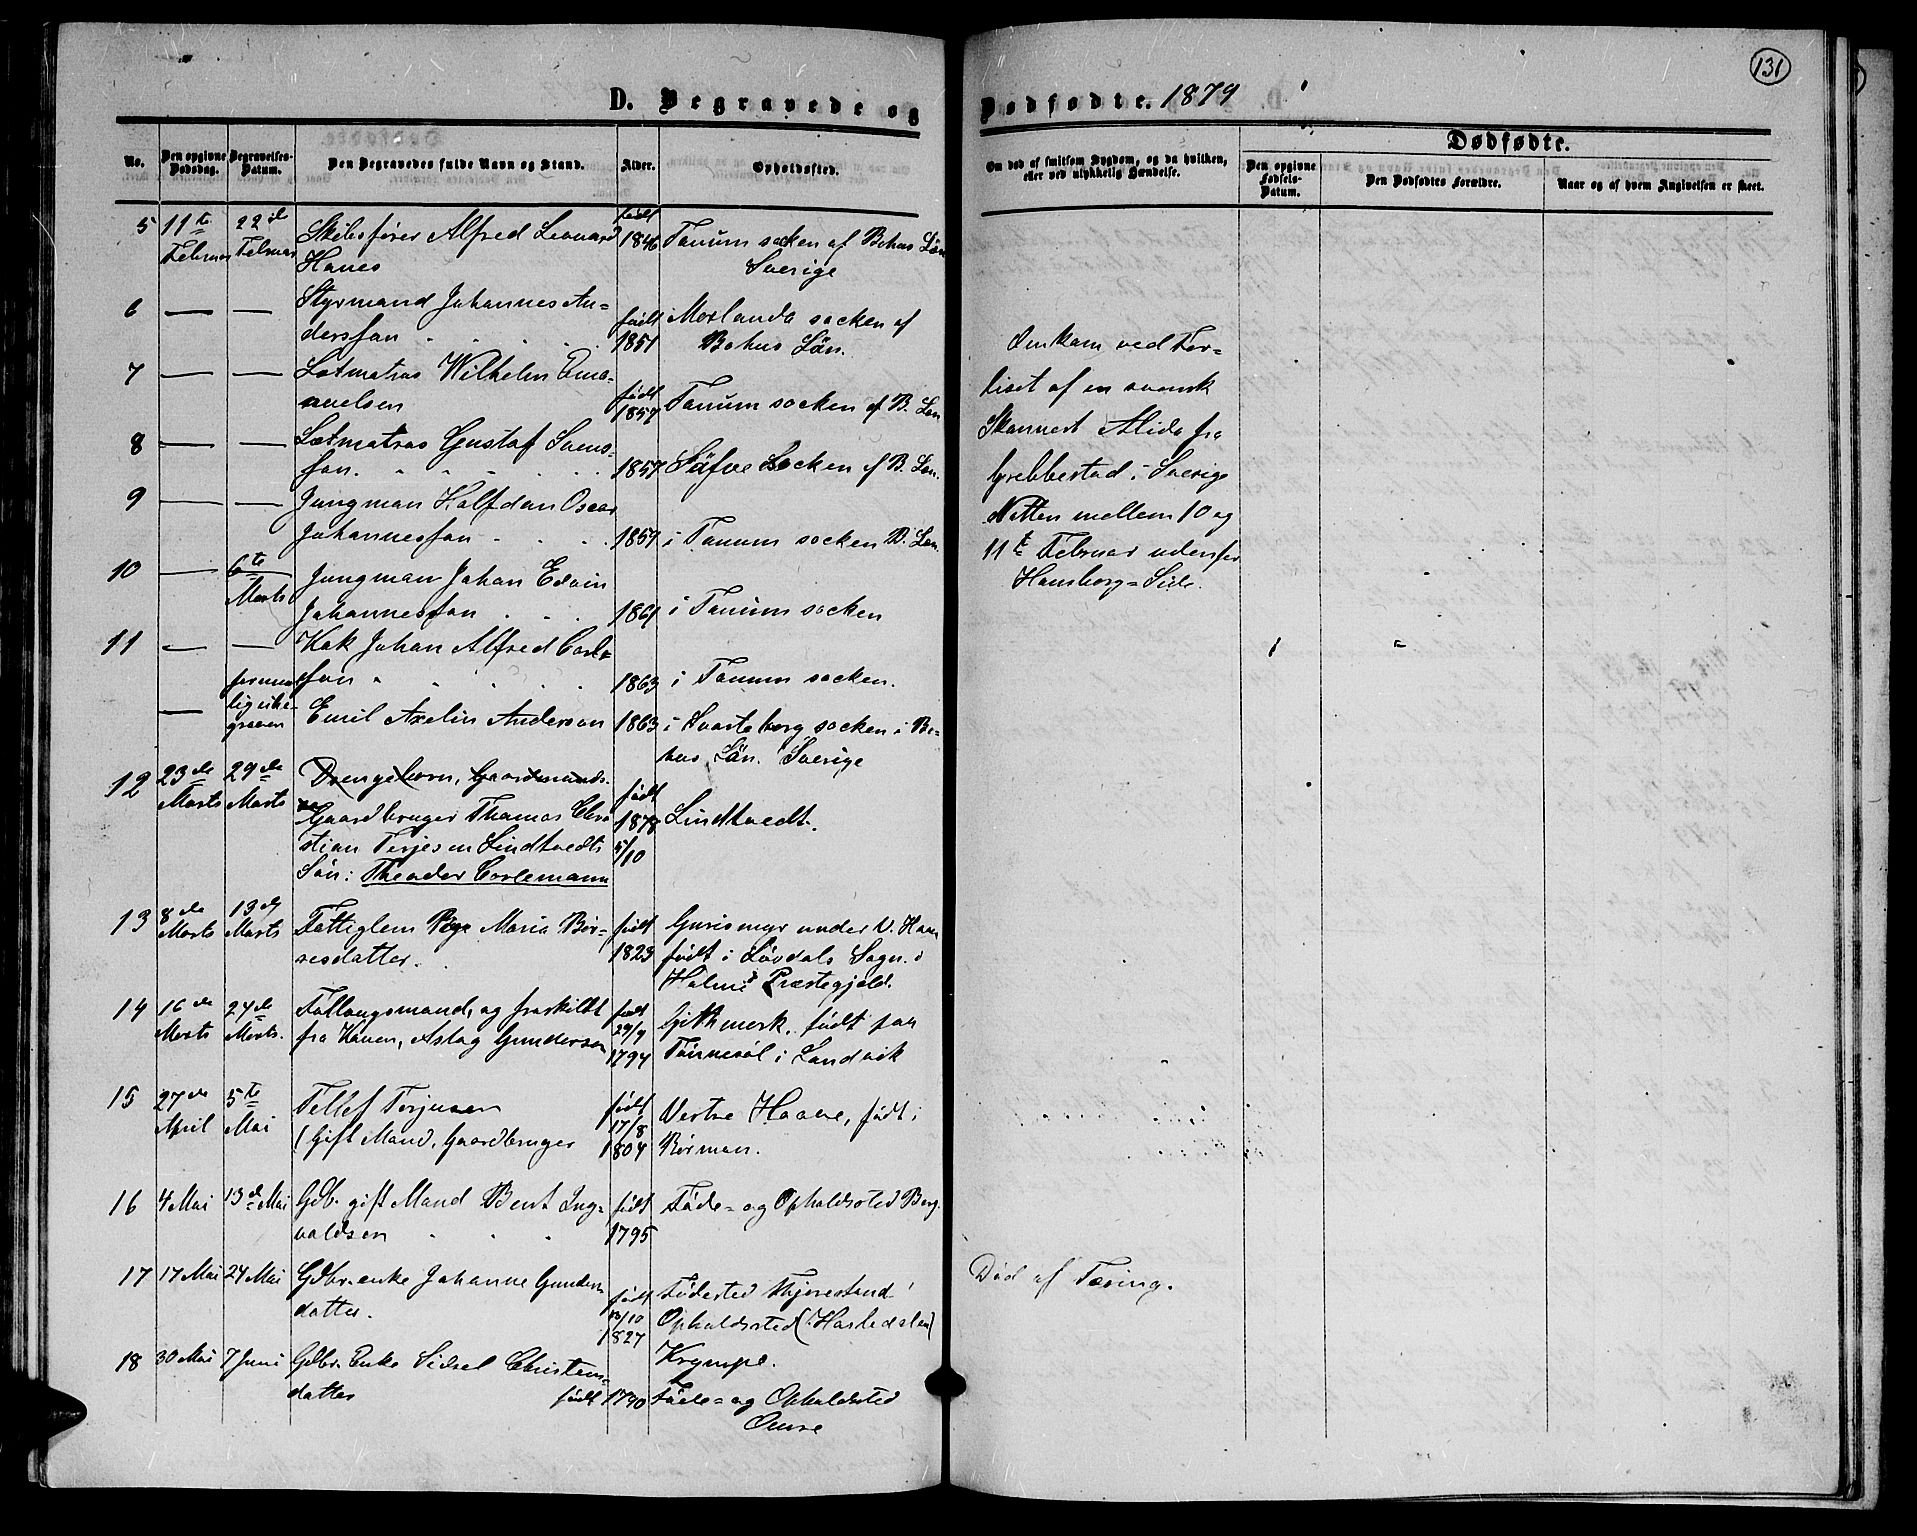 131
D. Begravede og Dødfødte. 1879
Dødfødte.
No.
Den opgivne Dødsdag.
Begravelses-Datum.
Den Begravedes fulde Navn og Stand.
Alder.
Opholdssted.
Om død af smitsom Sygdom, og da hvilken, eller ved ulykkelig Hændelse.
Den opgivne Fødsels-Datum.
Den Dødfødtes Forældre.
Naar og af hvem Angivelsen er skeet.
5 11te Februar 22de Februar Skibsfører Alfred Leonard født 1846 Tanum socken af Bohus Län
Hanes Sverige
6 — — Styrmand Johannes An-
dersson født 1851 Morlanda socken af
Bohus Län.
7 — — Letmatros Wilhelm Ema-
nuelsen født 1857 Tanum socken af B. Län
8 — — Letmatros Gustaf Svens-
son. 1857 Säfve Socken af B. Län.
9 — — Jungman Halfdan Oscar
Johannesson 1859 i Tanum socken B. Län.
10 — 6te Marts Jungman Johan Edvin
Johannesson 1861 i Tanum socken
11 — — Kok Johan Alfred Carl-
son 1863 i Tanum socken.
— Emil Axelin Anderson 1863 i Svarteborg socken i Bo-
hus Län. Sverige
Omkom ved For-
liset af en svensk
Skonnert Alida fra
Grebbestad i Sverige
Natten mellem 10 og
11te Februar udenfor
Homborg-Side.
12 23de Marts 29de Marts Drengebarn, Gaardmands
Gaardbruger Thomas Chri-
stian Terjesen Lindtvedts
Søn: Theodor Carlemann
født 1878 5/10 Lindtvedt.
13 8de Marts 13de Marts Fattiglem Pige Maria Bør-
resdatter. født 1823 Gurismyr under V. Haave
født i Løvdals Sogn i
Holme Præstegjeld.
14 16de Marts 24de Marts. Fatlaugsmand, og fraskildt
fra Konen, Aslag Gundersen
født 29/9 1794 Githmark, født paa
Tønnesøl i Landvik
15 27de April 5te Mai Tellef Terjesen
(Gift Mand, Gaardbruger født 17/8 1804 Vestre Haave, født i
Rørman.
16 4 Mai 13de Mai Gdb. gift Mand Bent Ing-
valdsen født 1795 Føde- og Opholdssted Berg.
17 17 Mai 24 Mai Gdbr. enke Johanne Gunders
datter. født 10/10 1827 Fødested Kjørestand
Opholdssted (Hasledalen)
Krympe.
Død af Tæring.
18 30 Mai 7 Juni Gdbr. Enke Sidsel Christens-
datter født 1790 Føde- og Opholdssted
Omre